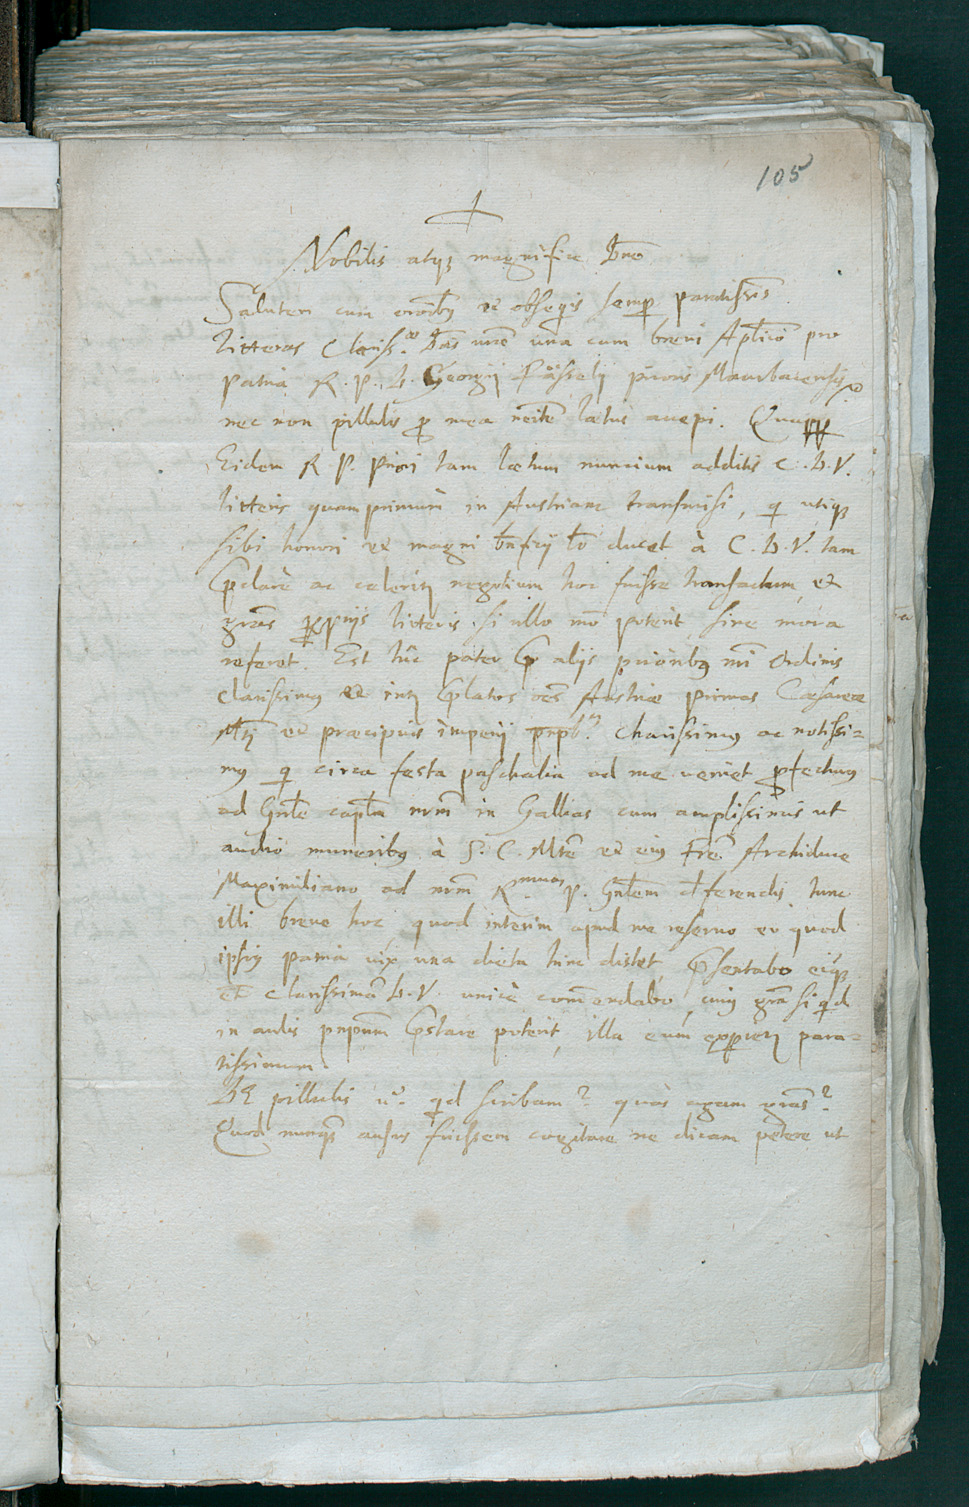 105
Nobilis atq; magnifice Dne
Salutem cum orōibꝫ et obseqijs semp paratissimis.
litteras Clariss.ae Dōis vrē una cum breui Aplico pro
patria R. P. D. Georgij Fasselij prioris Maurbacensis
nec non pillulis p mea laetus accepi.
Eidem R P. priori tam laetum nuncium additis C. D. V.
litteris quam primum in Austriam transmisi, q utiq;
sibi honori et magni bnficij lo ducet à C. D. V. tam
p̄clarè ac celeriter negotium hoc fuisse transactum, et
grās ppijs litteris si ullo mō poterit, sine mora
referet. Est hic pater p̄ alijs prioribꝫ nri Ordinis
clarissimꝫ et inter p̄latos oēs Austriae primas Caesareae
Mti et praecipuis imperij charissimꝫ ac notissi-
mꝫ q circa festa paschalia ad me veniet pfecturꝫ
ad Gnle captm nrm in Gallias cum amplissimis ut
audio muneribꝫ à S. C. Mte et eiꝫ Fre Archiduce
Maximiliano ad nrm R.mum P. Gnlem deferendis tunc
illi breve hoc quod interim apud me reseruo eo quod
ipsiꝫ patria vix una dieta hinc distet, p̄sentabo eiq;
et clarissimā D. V. unicè comendabo, cuiꝫ grā si qd
in aulis pncipum p̄stare poterit, illa eum experietur para-
tissimum.
DE pillulis v.o qd scribam? quas agam grās?
Quod nunqꝫ ausus fuissem cogitare ne dicam petere ut